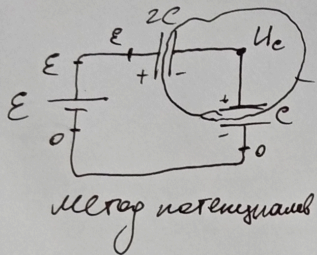 2C
ε
ε
Uc
+ -
ε
+
C
-
0
0
метод потенциалов